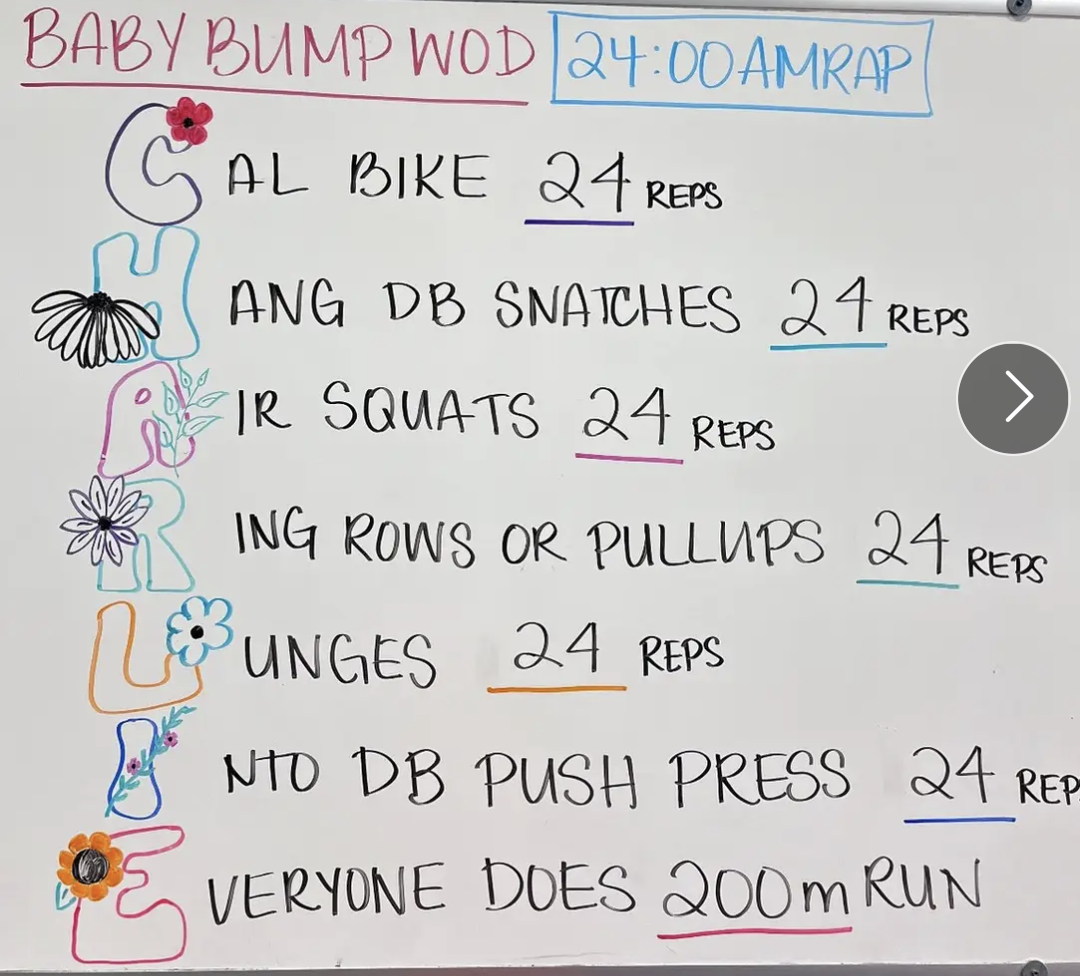 BABY BUMP WOD 24:00 AMRAP
CAL BIKE 24 REPS
HANG DB SNATCHES 24 REPS
AIR SQUATS 24 REPS
RING ROWS OR PULLUPS 24 REPS
LUNGES 24 REPS
INTO DB PUSH PRESS 24 REP
EVERYONE DOES 200m RUN